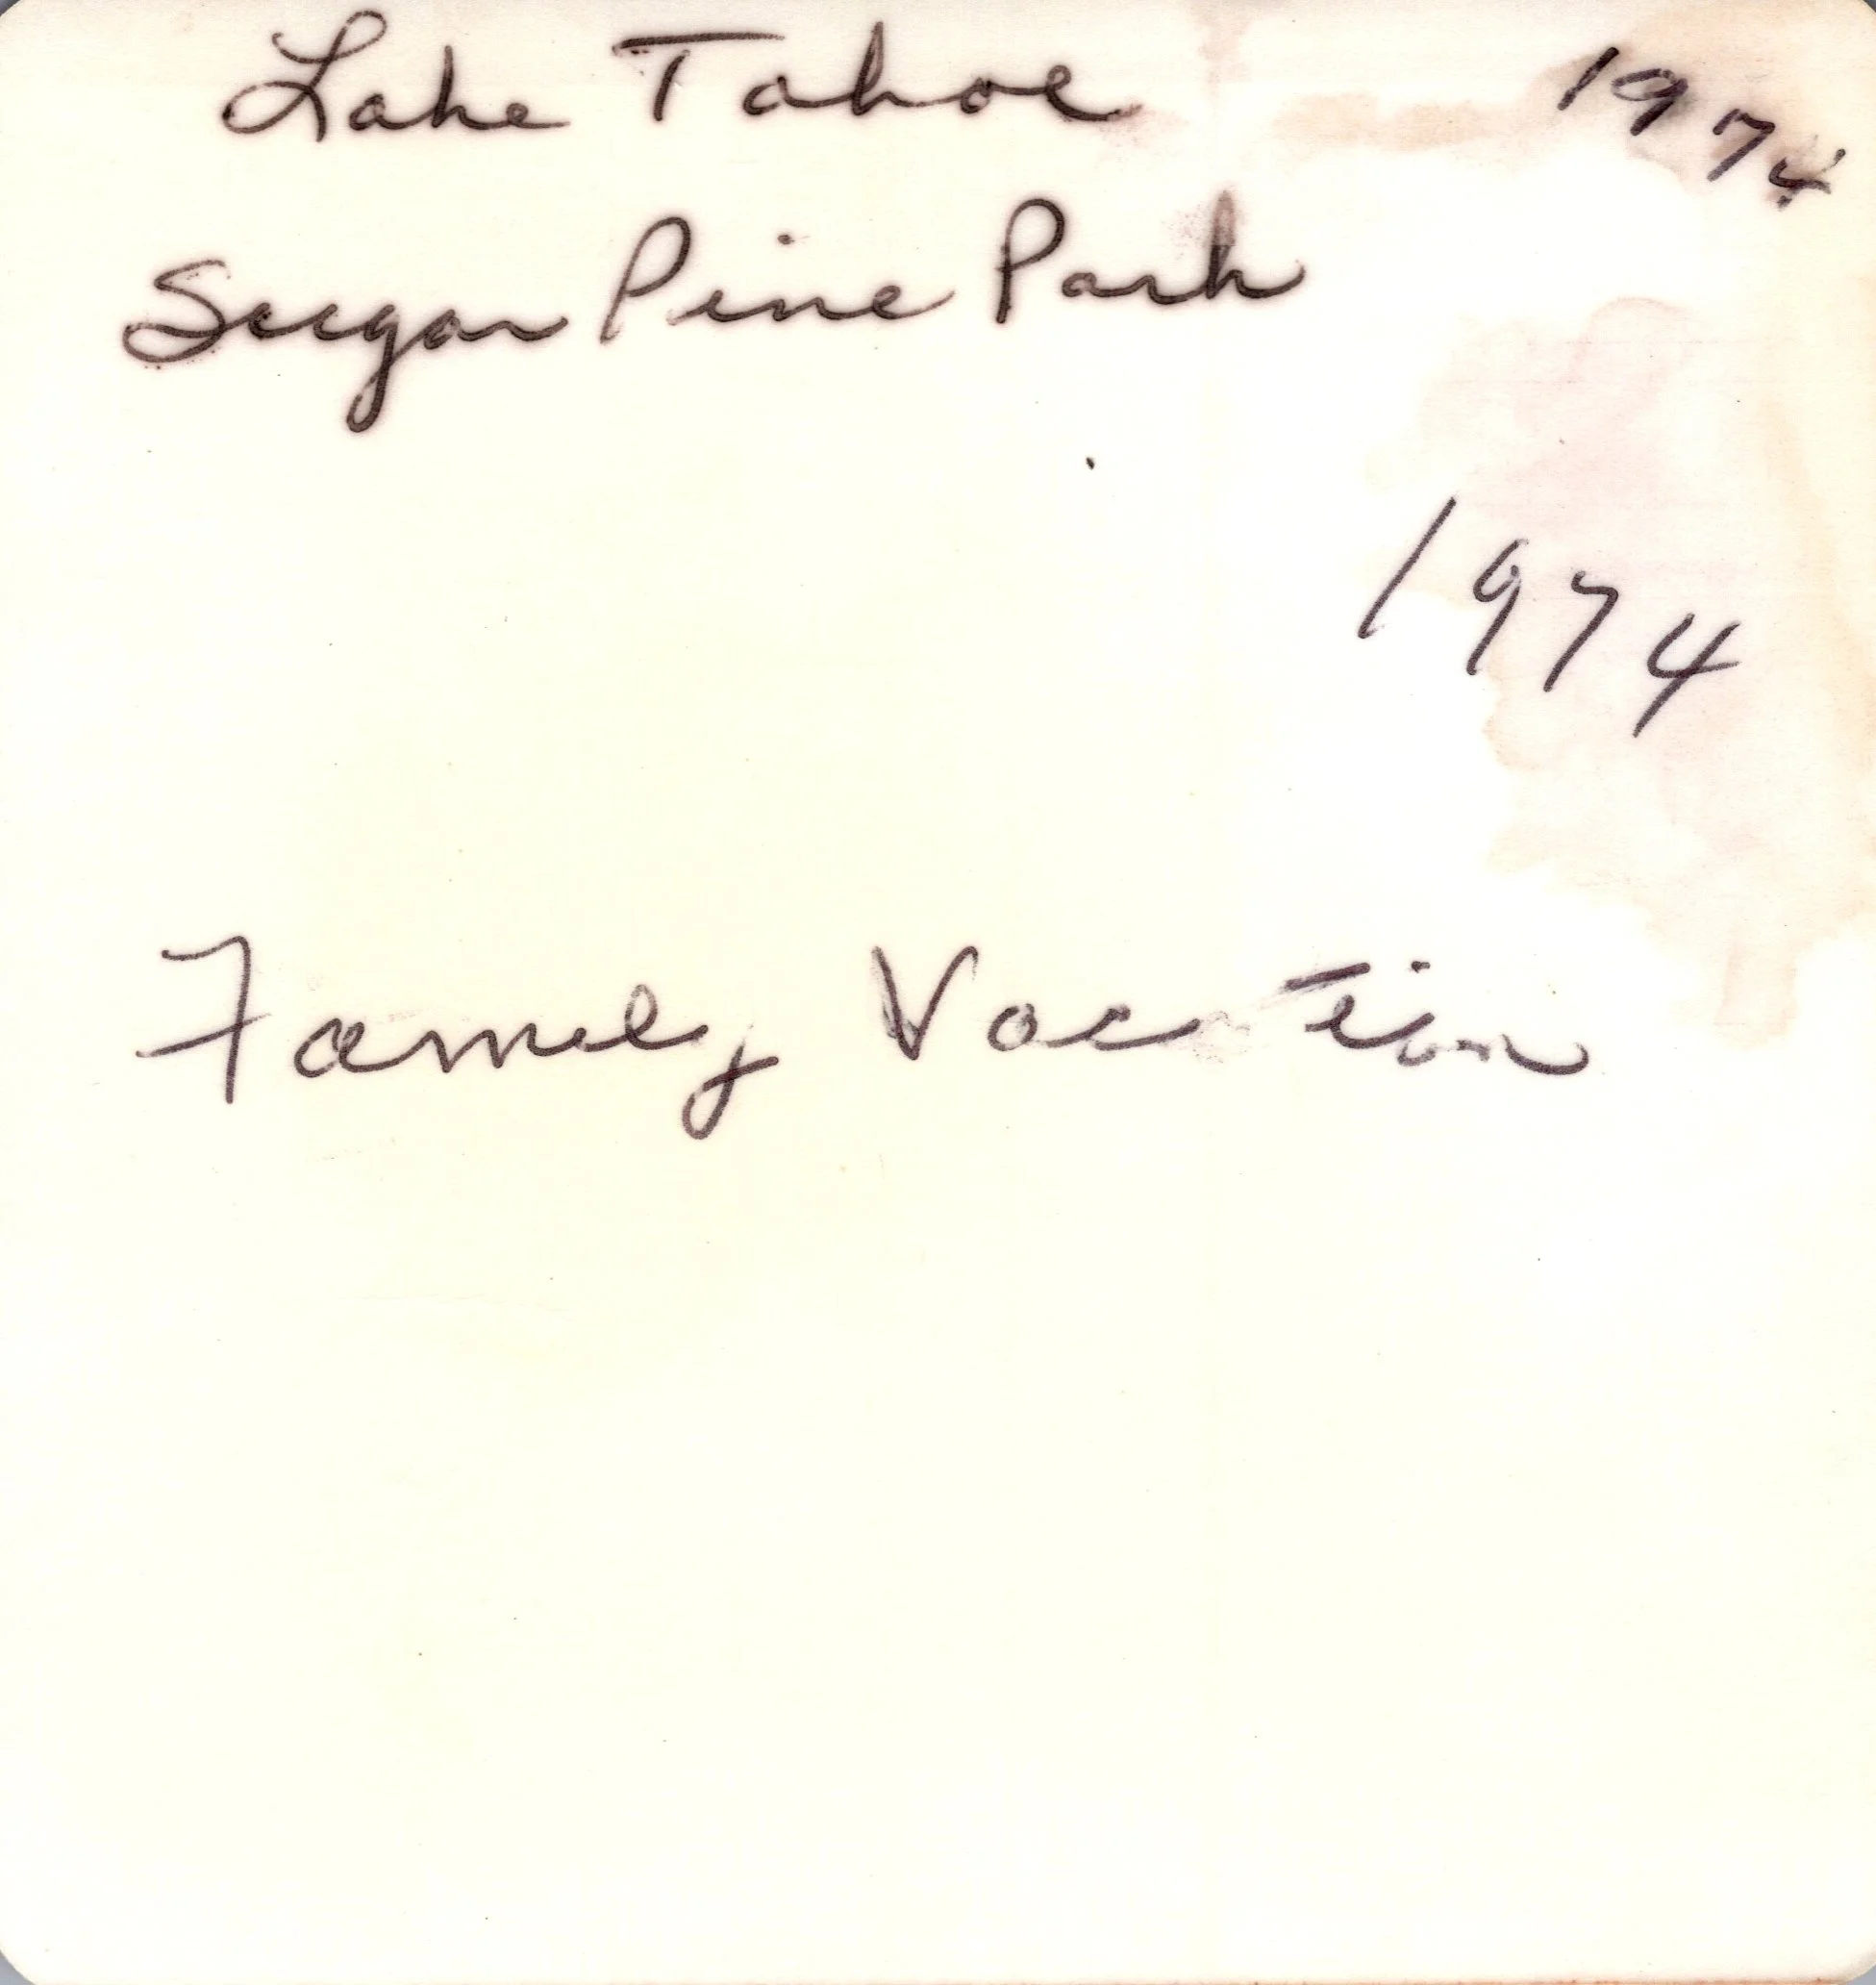 Lake Tahoe 1974
Sugar Pine Park
1974
Family Vacation